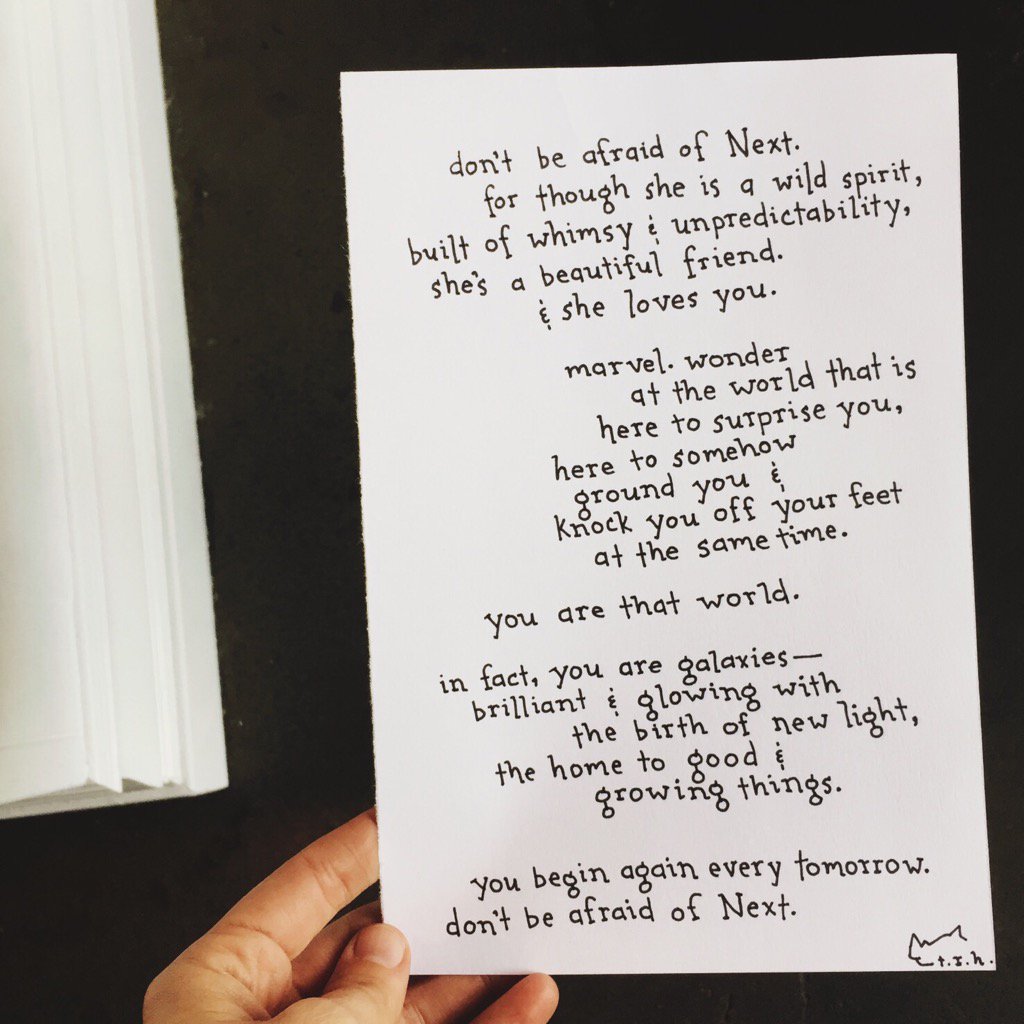 don't be afraid of Next.
for though she is a wild spirit,
built of whimsy & unpredictability,
she's a beautiful friend.
& she loves you.
marvel. wonder
at the world that is
here to surprise you,
here to somehow
ground you &
knock you off your feet
at the same time.
you are that world.
in fact, you are galaxies—
brilliant & glowing with
the birth of new light,
the home to good &
growing things.
you begin again every tomorrow.
don't be afraid of Next.
t.s.h.